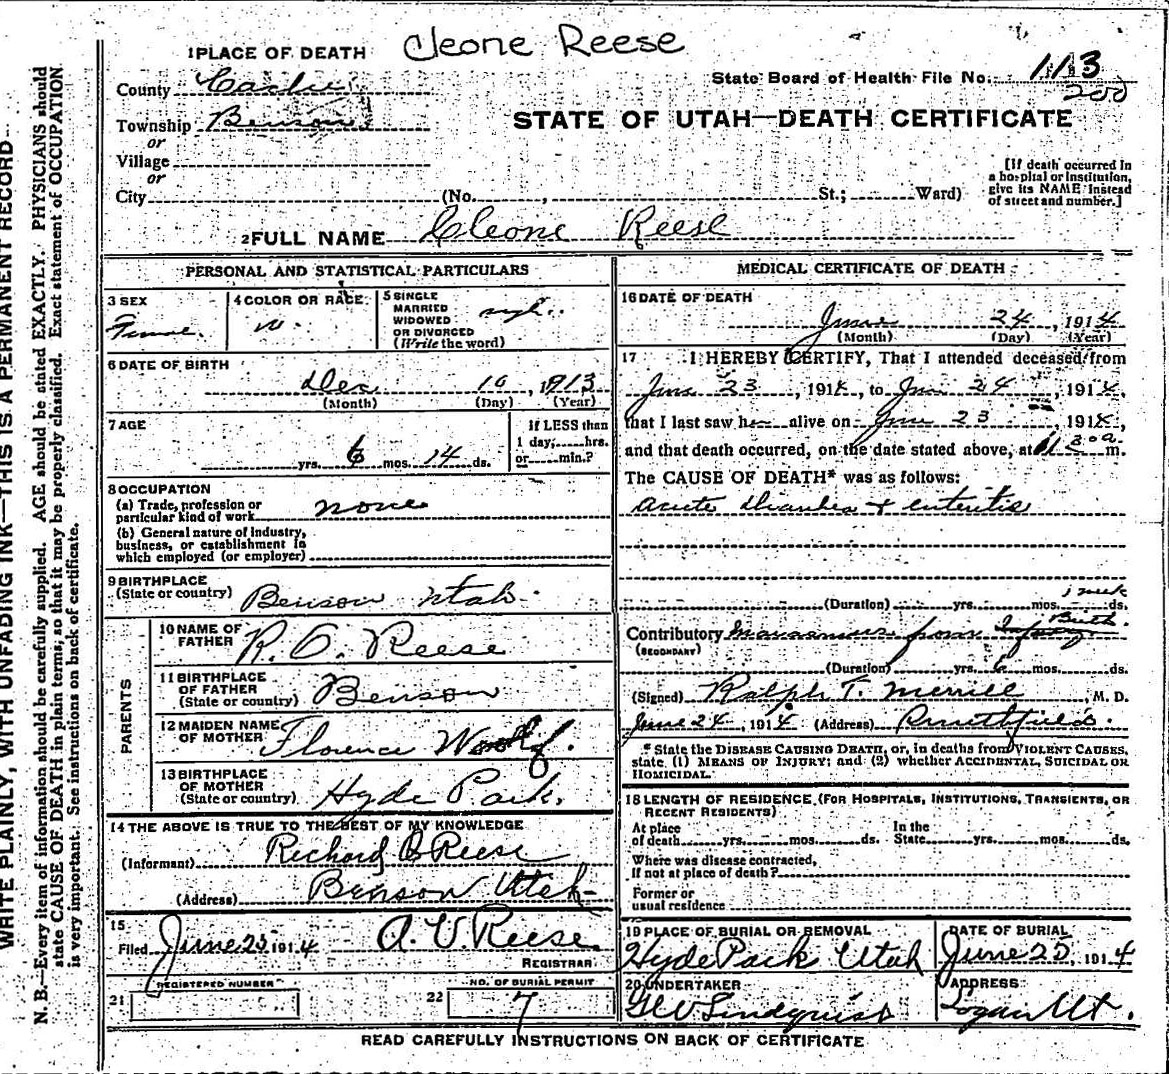 Cleone Reese
1 PLACE OF DEATH
County Cache
State Board of Health File No. 113
200
Township Benson
or
Village
or
City (No. , St.; Ward)
STATE OF UTAH—DEATH CERTIFICATE
[If death occurred in a hospital or institution, give its NAME instead of street and number.]
2 FULL NAME Cleone Reese
PERSONAL AND STATISTICAL PARTICULARS
3 SEX
4 COLOR OR RACE
w.
5 SINGLE
MARRIED
WIDOWED
OR DIVORCED
(Write the word)
6 DATE OF BIRTH
Dec 10, 1913
(Month) (Day) (Year)
7 AGE
yrs. 6 mos. 14 ds.
If LESS than
1 day, hrs.
or min.?
8 OCCUPATION
(a) Trade, profession or
particular kind of work none
(b) General nature of industry,
business, or establishment in
which employed (or employer)
9 BIRTHPLACE
(State or country) Benson Utah.
PARENTS
10 NAME OF
FATHER R. O. Reese
11 BIRTHPLACE
OF FATHER
(State or country) Benson
12 MAIDEN NAME
OF MOTHER Florence
13 BIRTHPLACE
OF MOTHER
(State or country) Hyde Park.
14 THE ABOVE IS TRUE TO THE BEST OF MY KNOWLEDGE
(Informant) Richard Reese
(Address) Benson Utah
15
Filed June 25 1914 A. V. Reese.
REGISTRAR
21 REGISTERED NUMBER
22 NO. OF BURIAL PERMIT
7
MEDICAL CERTIFICATE OF DEATH
16 DATE OF DEATH
June 24, 1914
(Month) (Day) (Year)
17 I HEREBY CERTIFY, That I attended deceased from
June 23, 1914, to June 24, 1914,
that I last saw her alive on June 23 1914,
and that death occurred, on the date stated above, at 30 a. m.
The CAUSE OF DEATH* was as follows:
acute diarrhea & enteritis
1 week
(Duration) yrs. mos. ds.
Birth.
Contributory from
(SECONDARY)
(Duration) yrs. 6 mos. ds.
(Signed) Ralph T. Merrill, M. D.
June 24, 1914 (Address) Smithfield.
* State the DISEASE CAUSING DEATH, or, in deaths from VIOLENT CAUSES,
state (1) MEANS OF INJURY; and (2) whether ACCIDENTAL, SUICIDAL OR
HOMICIDAL.
18 LENGTH OF RESIDENCE (FOR HOSPITALS, INSTITUTIONS, TRANSIENTS, OR
RECENT RESIDENTS)
At place
of death yrs. mos. ds.
In the
State yrs. mos. ds.
Where was disease contracted,
If not at place of death?
Former or
usual residence
19 PLACE OF BURIAL OR REMOVAL
Hyde Park Utah
DATE OF BURIAL
June 25, 1914
20 UNDERTAKER
Lindquist
ADDRESS
Logan Ut.
READ CAREFULLY INSTRUCTIONS ON BACK OF CERTIFICATE
WRITE PLAINLY, WITH UNFADING INK—THIS IS A PERMANENT RECORD
N. B.—Every item of information should be carefully supplied. AGE should be stated EXACTLY. PHYSICIANS should
state CAUSE OF DEATH in plain terms, so that it may be properly classified. Exact statement of OCCUPATION
is very important. See instructions on back of certificate.